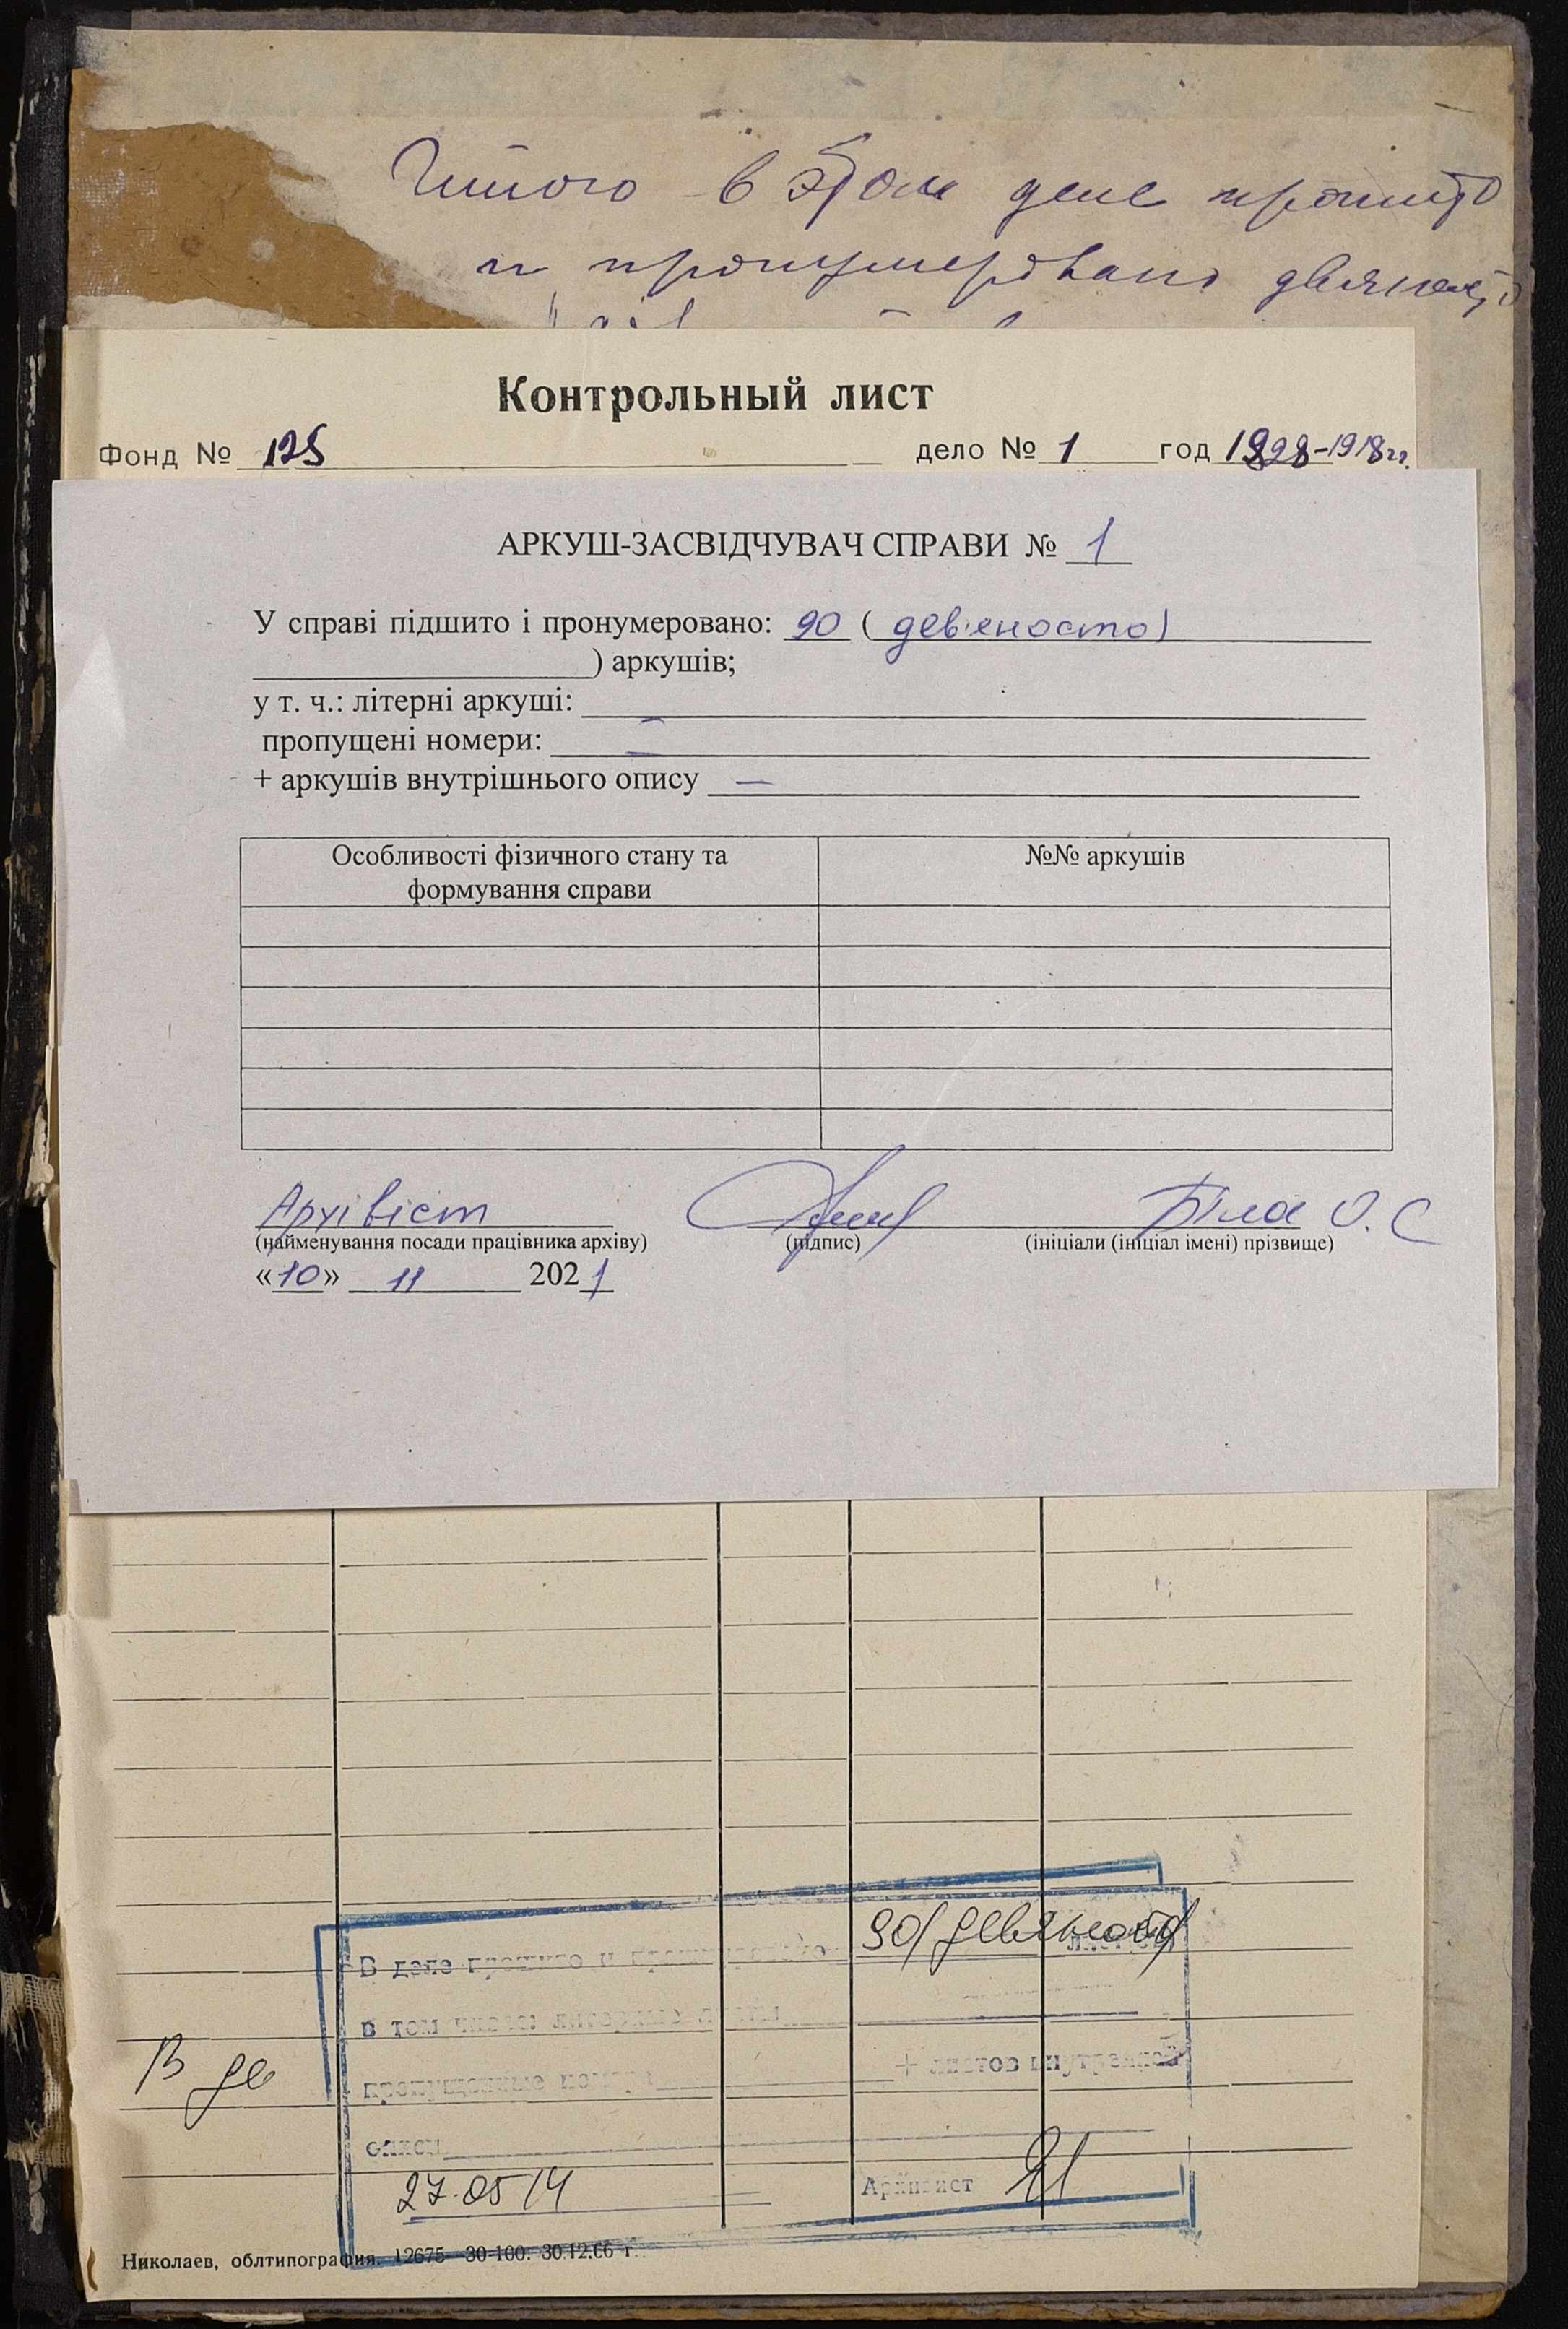 Итого в этом деле прошито
и пронумеровано девяносто
Контрольный лист
Фонд № 125 дело № 1 год 1898-1918 гг.
АРКУШ-ЗАСВІДЧУВАЧ СПРАВИ № 1
У справі підшито і пронумеровано: 90 ( дев'яносто)
) аркушів;
у т. ч.: літерні аркуші: —
пропущені номери: —
+ аркушів внутрішнього опису —
Особливості фізичного стану та формування справи
№№ аркушів
Архівіст Біла О. С
(найменування посади працівника архіву) (підпис) (ініціали (ініціал імені) прізвище)
«10» 11 2021
В деле прошито и пронумеровано 90/девяносто/ листов
в том числе: литерные листы
пропущенные номера + листов внутренней
описи
В де
27.05 14 Архивист
Николаев, облтипография. 12675—30-100. 30.12.66 г.